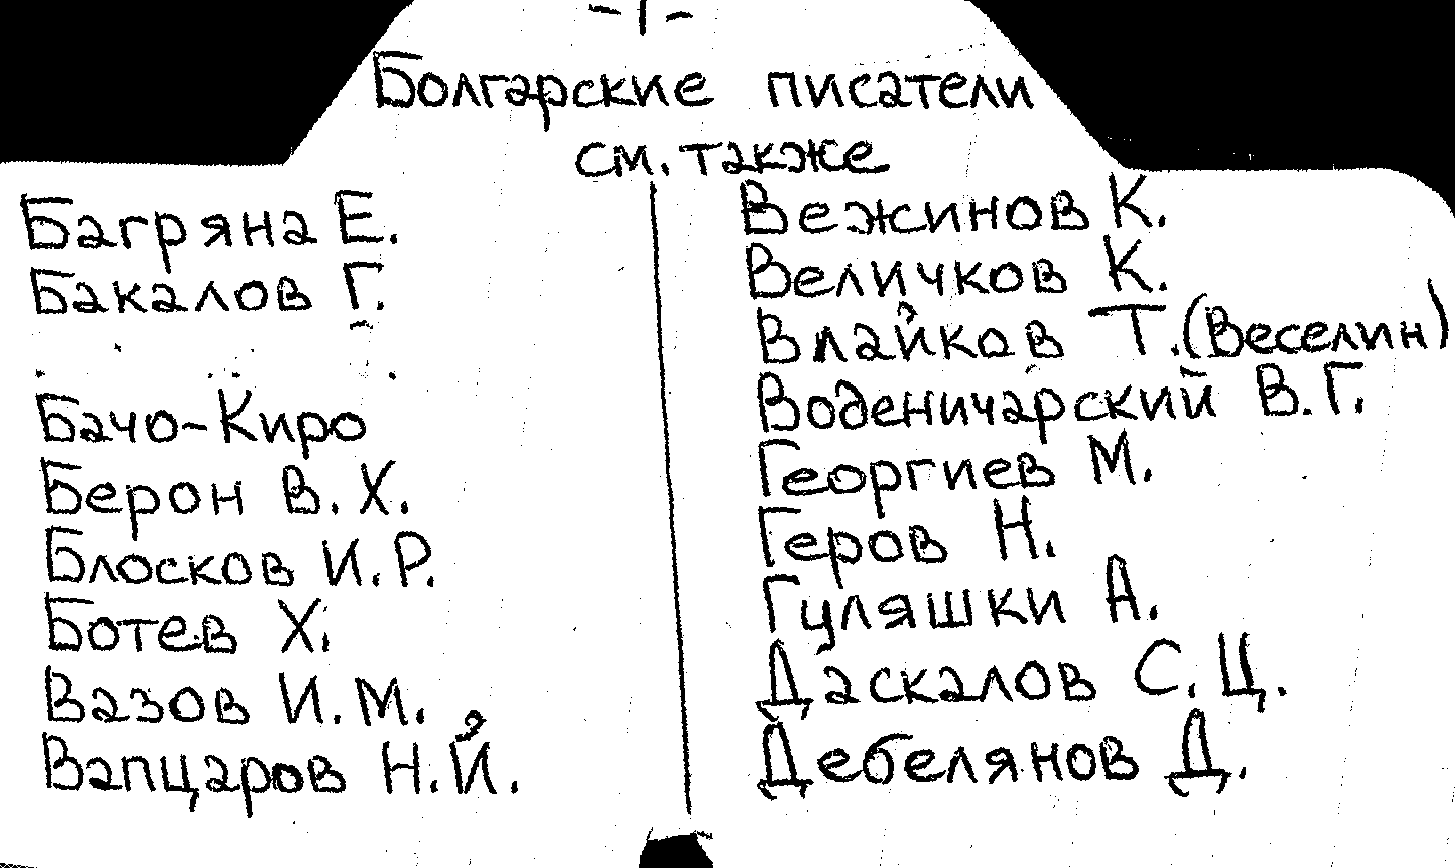 - 1 -
Болгарские писатели
см. также
Багряна Е.
Бакалов Г.
Бачо-Киро
Берон В. Х.
Блосков И. Р.
Ботев Х.
Вазов И. М.
Вапцаров Н. Й.
Вежинов К.
Величков К.
Влайков Т. (Веселин)
Воденичарский В. Г.
Георгиев М.
Геров Н.
Гуляшки А.
Даскалов С. Ц.
Дебелянов Д.